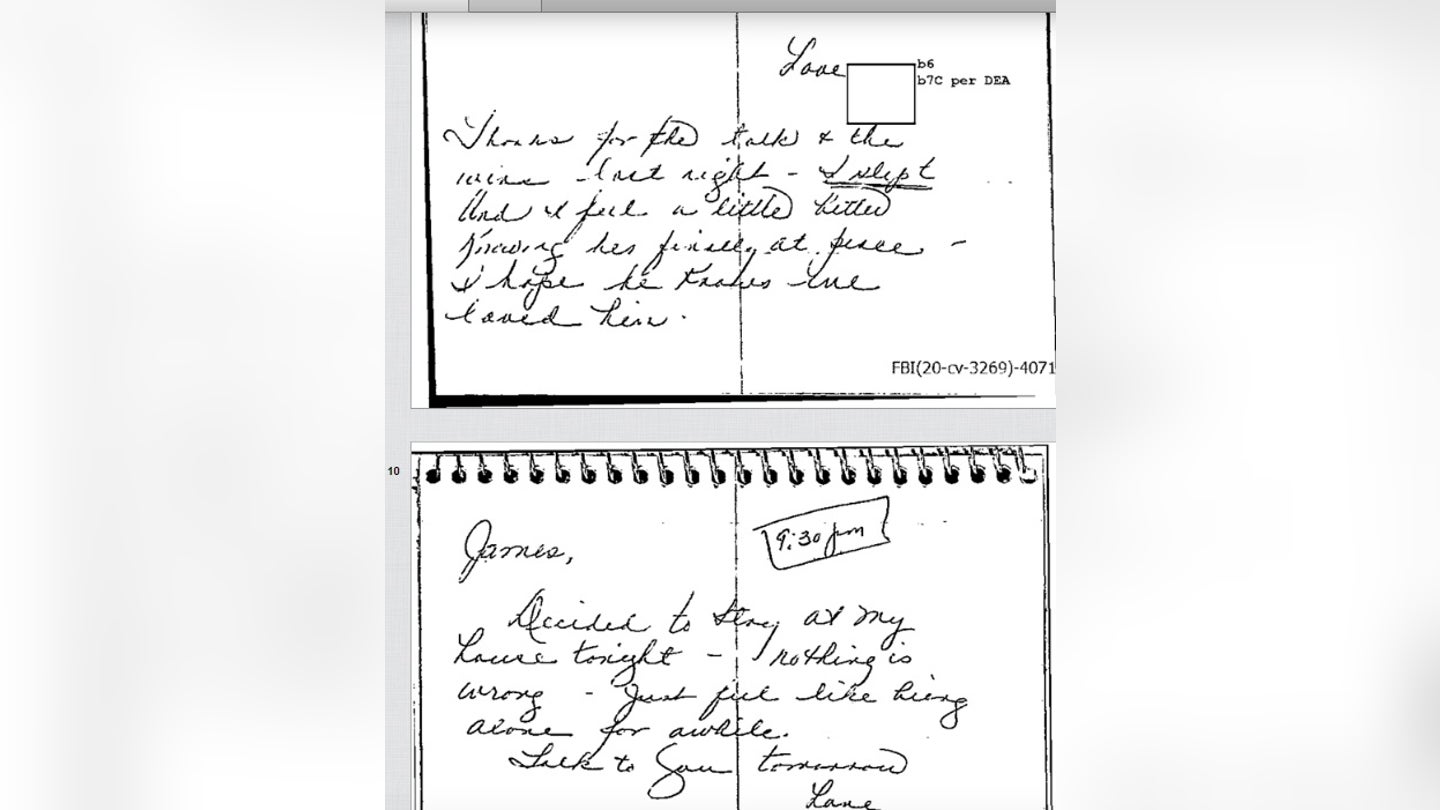 Love
b6
b7C per DEA
Thanks for the talk & the
wine last night - I slept
And I feel a little better
Knowing hes finally at peace -
I hope he knows we
loved him.
FBI(20-cv-3269)-4071
10
9:30 pm
James,
Decided to stay at my
house tonight - nothing is
wrong - Just feel like being
alone for awhile.
Talk to you tomorrow
Love